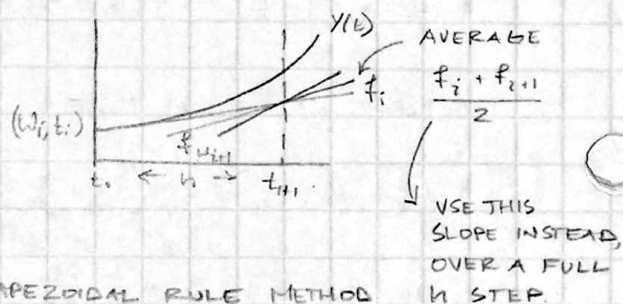 Y(t)
AVERAGE
f_i
f_i + f_{i+1}
2
(W_i, t_i)
t_i ← h → t_{i+1}
USE THIS
SLOPE INSTEAD,
OVER A FULL
h STEP
APEZOIDAL RULE METHOD